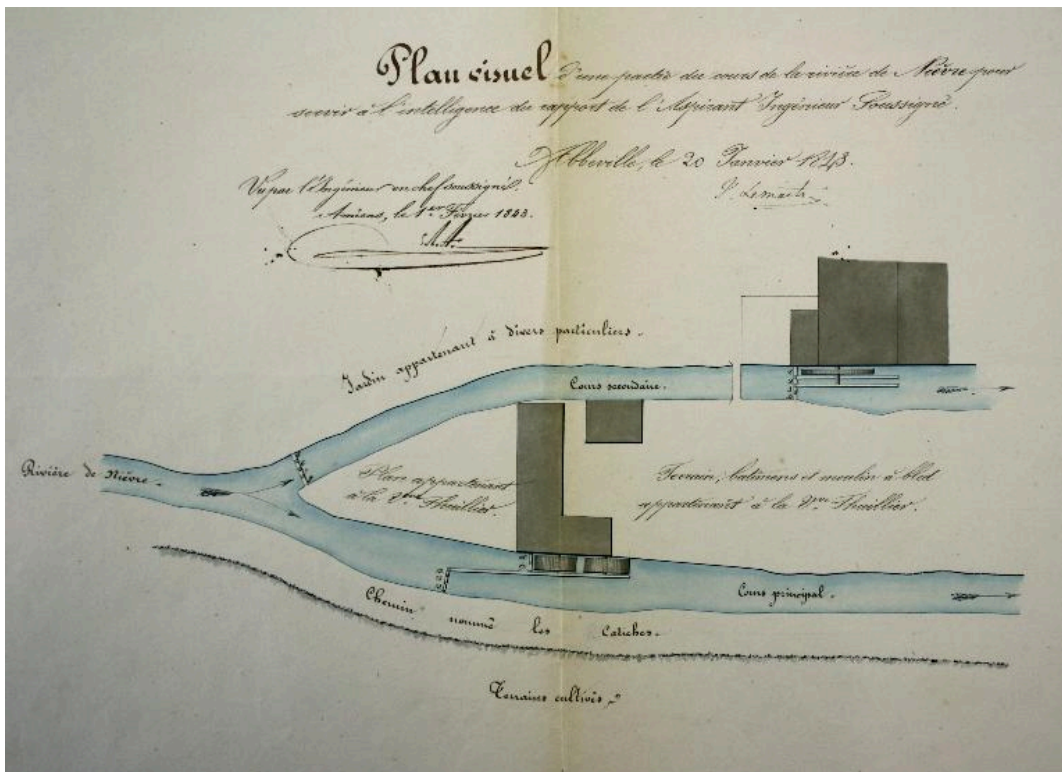 Plan visuel d'une partie du cours de la rivière de Nièvre pour
servir à l'intelligence du rapport de l'Aspirant Ingénieur Soussigné.
Abbeville, le 20 Janvier 1843.
Vu par l'Ingénieur en chef soussigné.
Amiens, le 1er Février 1843.
Jardin appartenant à divers particuliers.
Cours secondaire.
Rivière de Nièvre.
Plan appartenant
à la Vve Thuillier.
Terrain, bâtimens et moulin à bled
appartenant à la Vve Thuillier.
Cours principal.
Chemin nommé les Catiches.
Terrains cultivés.